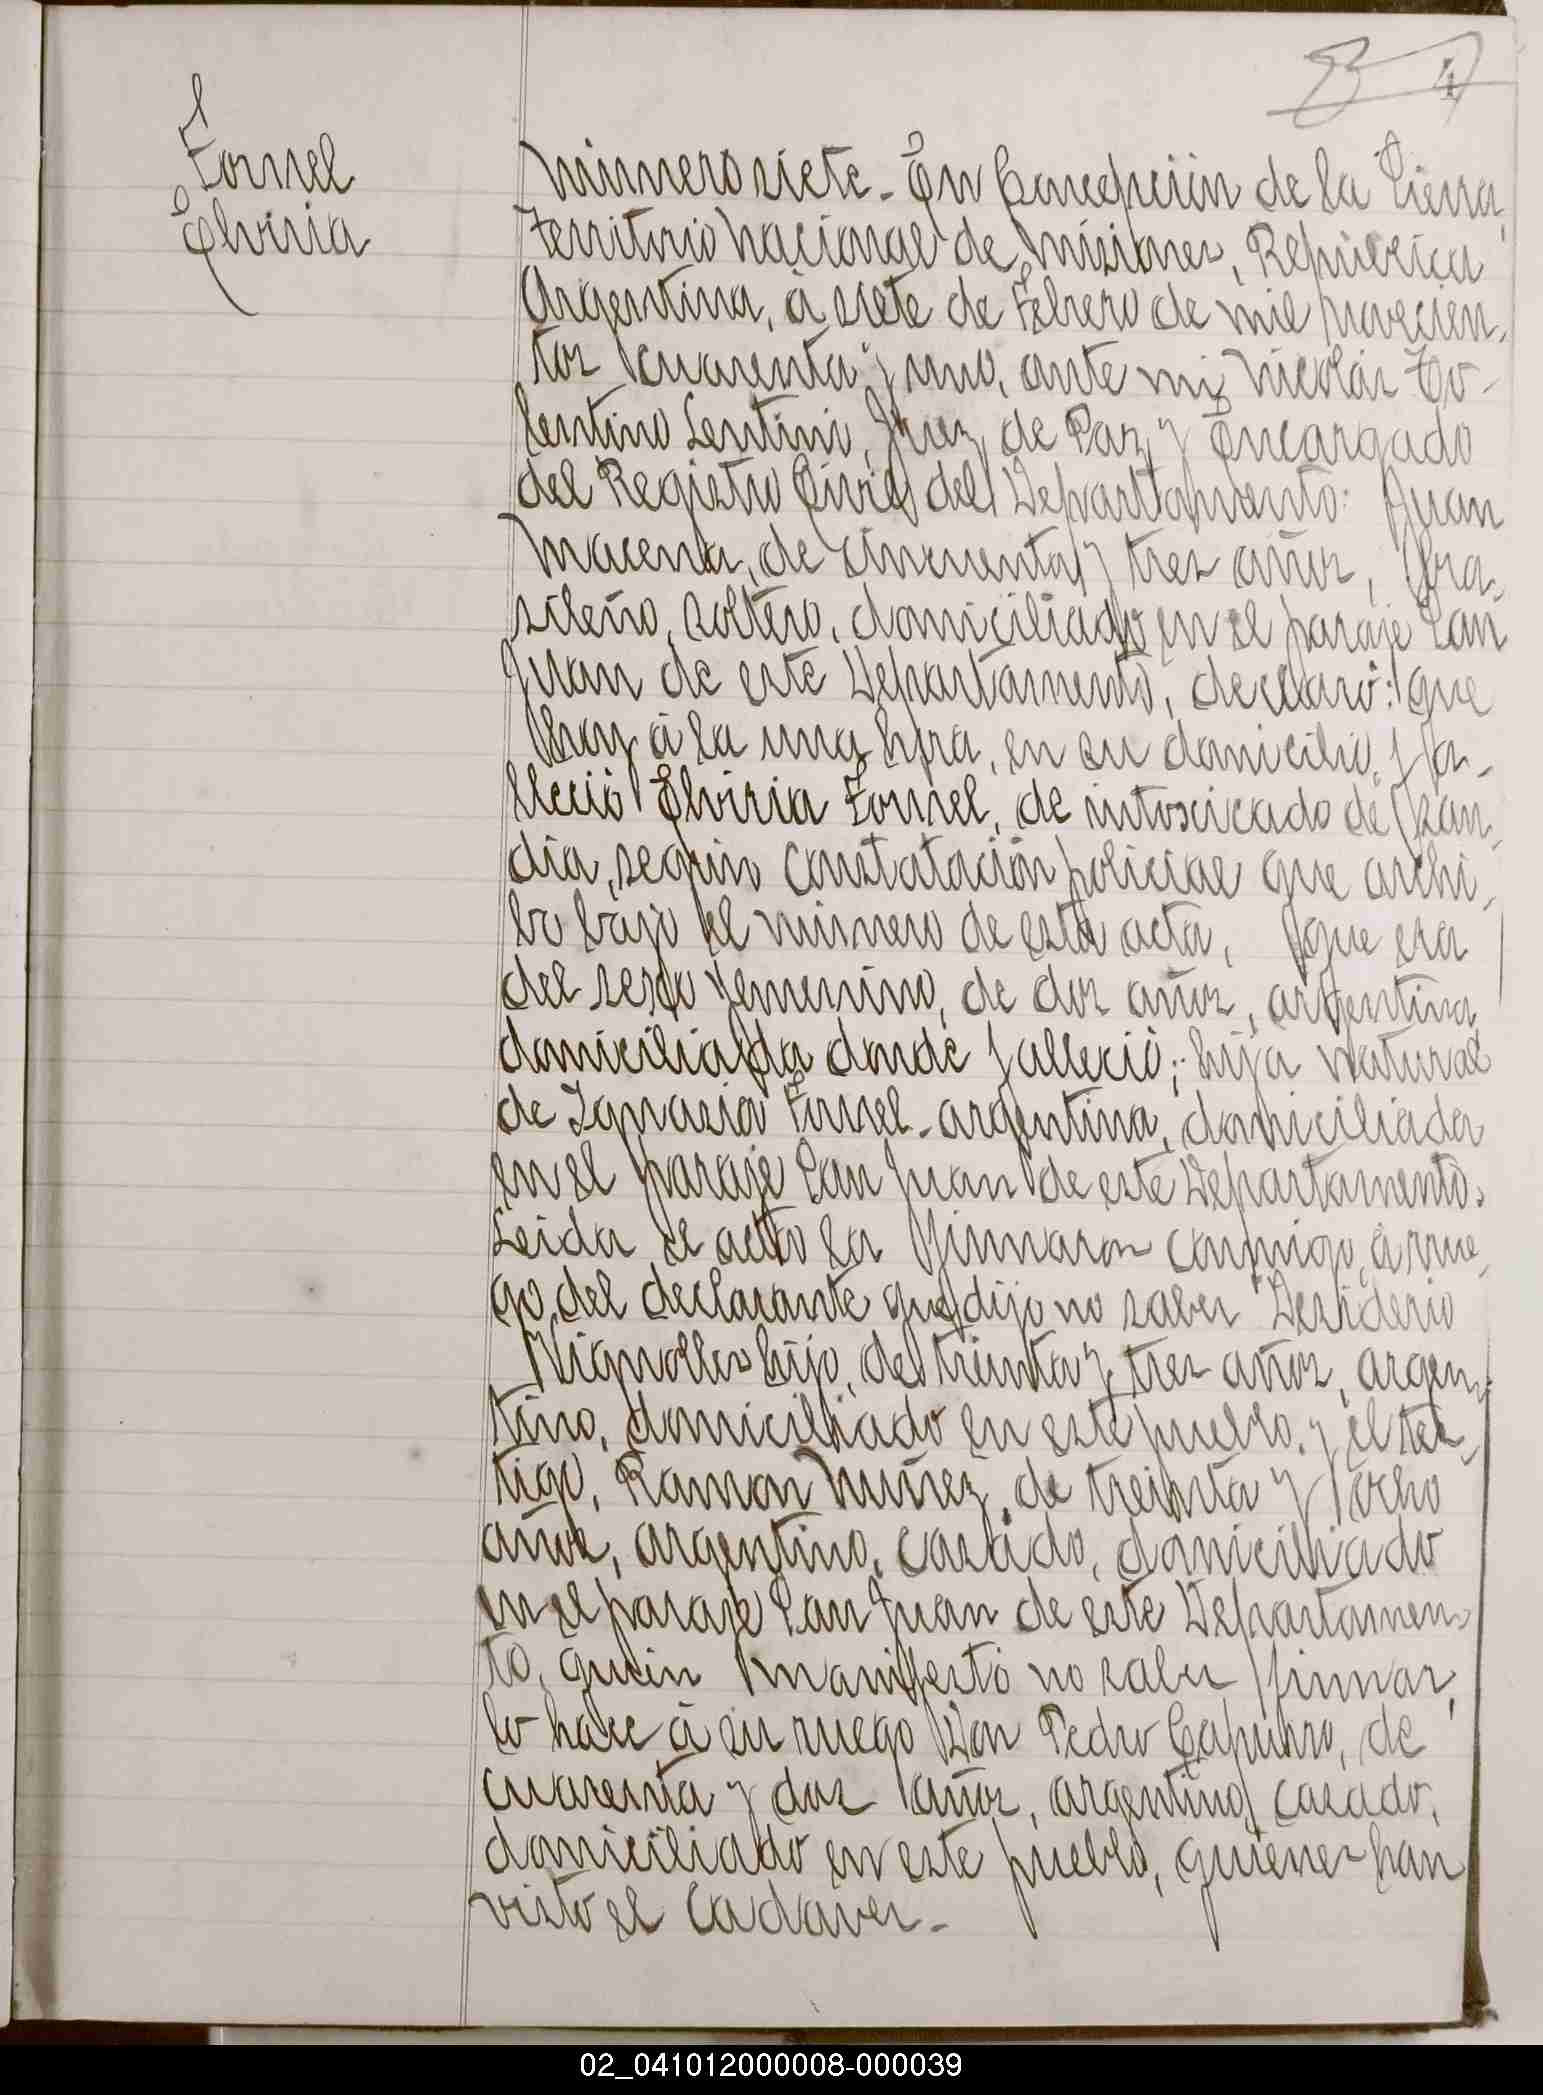 4
Fornel
Elviria
Número siete. En Concepción de la Sierra,
Territorio Nacional de Misiones, República
Argentina, à siete de Febrero de mil novecien-
tos cuarenta y uno, ante mi Nicolás To-
lentino Lentini, Juez de Paz y Encargado
del Registro Civil del Departamento: Juan
Macena, de cincuenta y tres años, bra-
sileño, soltero, domiciliado en el paraje San
Juan de este Departamento, declaró: que
hoy à la una hora, en su domicilio, fa-
lleció Elviria Fornel, de intoxicado de
dia, según constatación policial que archi-
bo bajo el número de esta acta, que era
del sexo femenino, de dos años, argentina,
domiciliada donde falleció; hija natural
de Ignasia Fornel, argentina, domiciliada
en el paraje San Juan de este Departamento.
Leida el acta la firmaron conmigo, à rue-
go del declarante que dijo no saber Desiderio
Vignolles hijo, de treinta y tres años, argen-
tino, domiciliado en este pueblo, y el tes-
tigo, Ramon Núñez, de treinta y ocho
años, argentino, casado, domiciliado
en el paraje San Juan de este Departamen-
to, quien manifestó no saber firmar,
lo hace à su ruego Don Pedro Capurro, de
cuarenta y dos años, argentino, casado,
domiciliado en este pueblo, quienes han
visto el cadaver.-
02_041012000008-000039